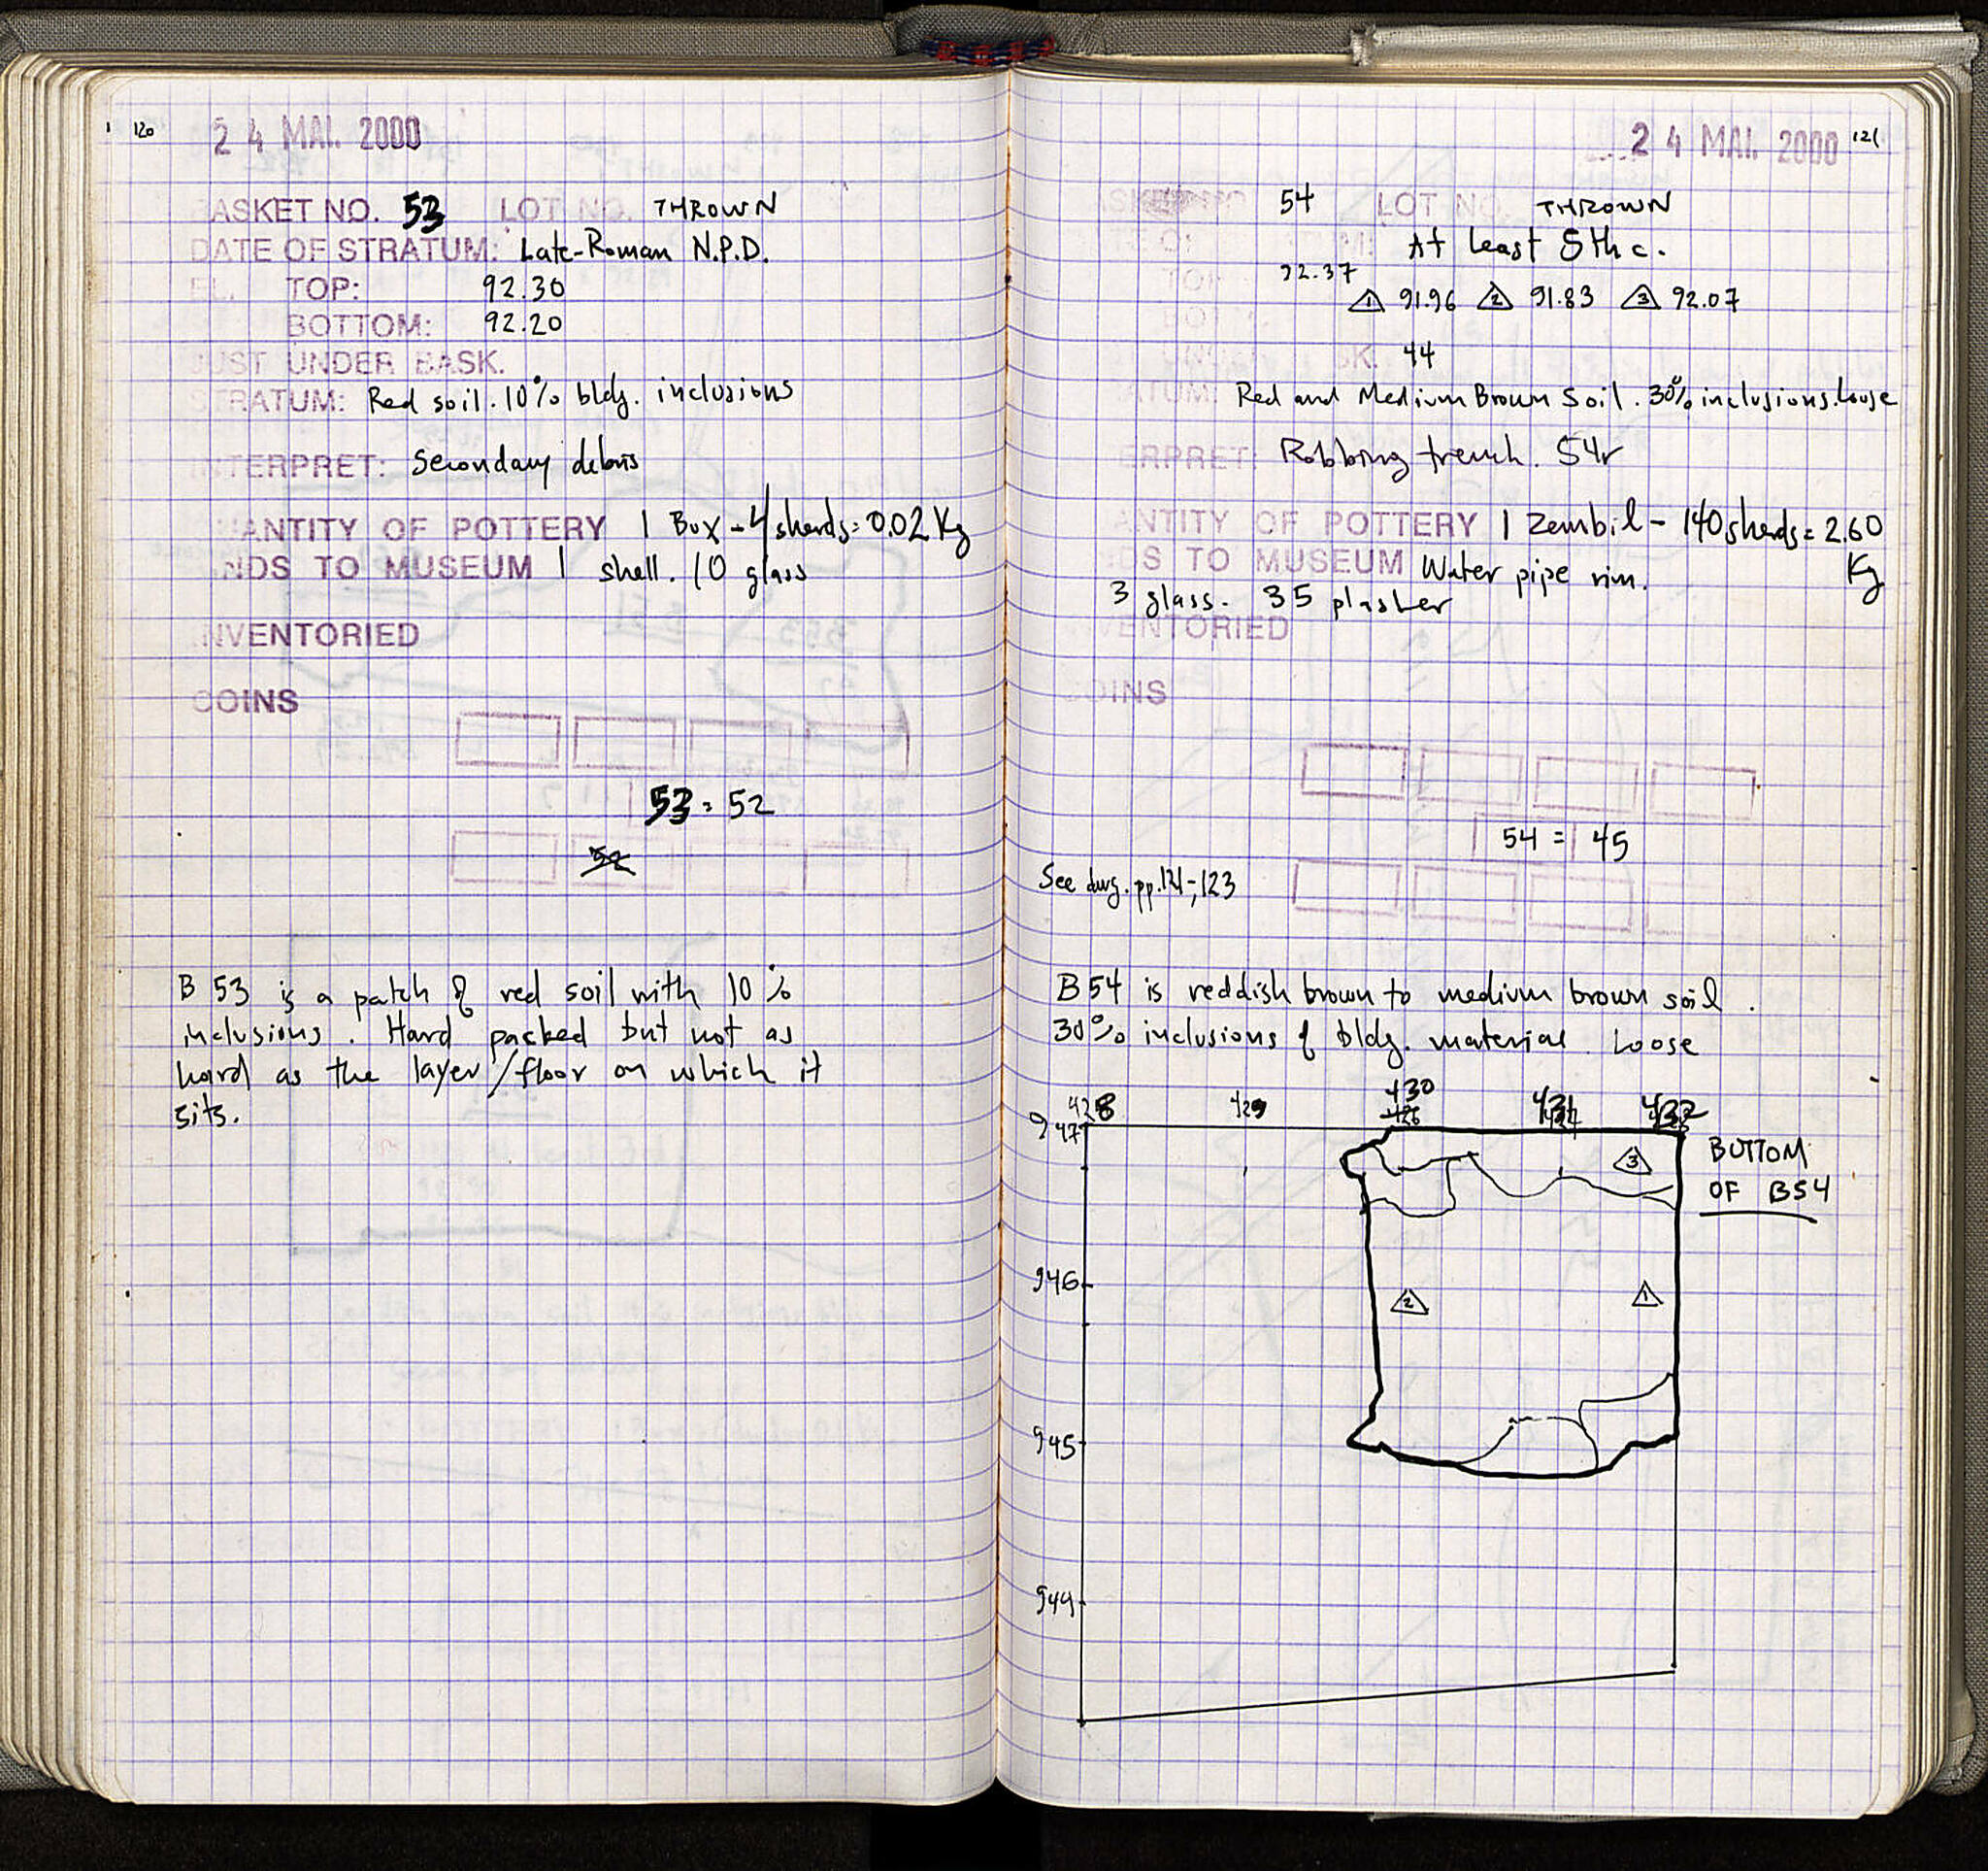 120
24 MAI. 2000
BASKET NO. 53 LOT NO. THROWN
DATE OF STRATUM: Late-Roman N.P.D.
EL. TOP: 92.30
BOTTOM: 92.20
JUST UNDER BASK.
STRATUM: Red soil. 10% bldg. inclusions
INTERPRET: Secondary debris
QUANTITY OF POTTERY 1 Box - 4 sherds = 0.02 Kg
NDS TO MUSEUM 1 shell. 10 glass
INVENTORIED
COINS
53 = 52
52
B 53 is a patch of red soil with 10%
inclusions. Hard packed but not as
hard as the layer/floor on which it
sits.
24 MAI. 2000 121
54 LOT NO. THROWN
At least 5th c.
TOP 92.37
△1 91.96 △2 91.83 △3 92.07
UNDER BK. 44
ATUM: Red and Medium Brown Soil. 30% inclusions. Loose
ERPRET: Robbing trench. 54r
ANTITY OF POTTERY 1 Zembil - 140 sherds = 2.60
Kg
DS TO MUSEUM Water pipe rim.
3 glass. 35 plaster
VENTORIED
COINS
54 = 45
See dwg. pp. 121-, 123
B 54 is reddish brown to medium brown soil.
30% inclusions of bldg. material. Loose
428 429 430 431 432
947
3
BOTTOM
OF B54
946
2 1
945
944